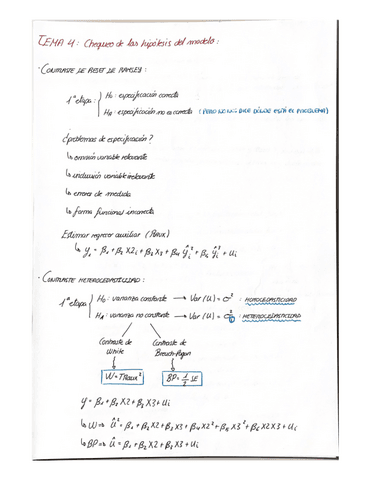 TEMA 4: Chequeo de las hipótesis del modelo:
· CONTRASTE DE RESET DE RAMSEY:
1ª etapa: H₀: especificación correcta
H₁: especificación no es correcta (PERO NO NOS DICE DÓNDE ESTÁ EL PROBLEMA)
¿problemas de especificación?
↳ omisión variable relevante
↳ inclusión variable irrelevante
↳ errores de medida
↳ forma funcional incorrecta
Estimar regresor auxiliar (Raux)
↳ yᵢ = β₁ + β₂ X2ᵢ + β₃ X3 + β₄ ŷᵢ² + β₄ ŷᵢ³ + uᵢ
· CONTRASTE HETEROCEDASTICIDAD:
1ª etapa H₀: varianza constante → Var (U) = σ² : HOMOCEDASTICIDAD
H₁: varianza no constante → Var (U) = σᵢ² : HETEROCEDASTICIDAD
Contraste de White
Contraste de Breusch-Pagan
W = T Raux²
BP = 1/2 SE
y = β₁ + β₂ X2 + β₃ X3 + uᵢ
↳ W ⇒ û² = β₁ + β₂ X2 + β₃ X3 + β₄ X2² + β₅ X3² + β₆ X2 X3 + uᵢ
↳ BP ⇒ û = β₁ + β₂ X2 + β₃ X3 + uᵢ